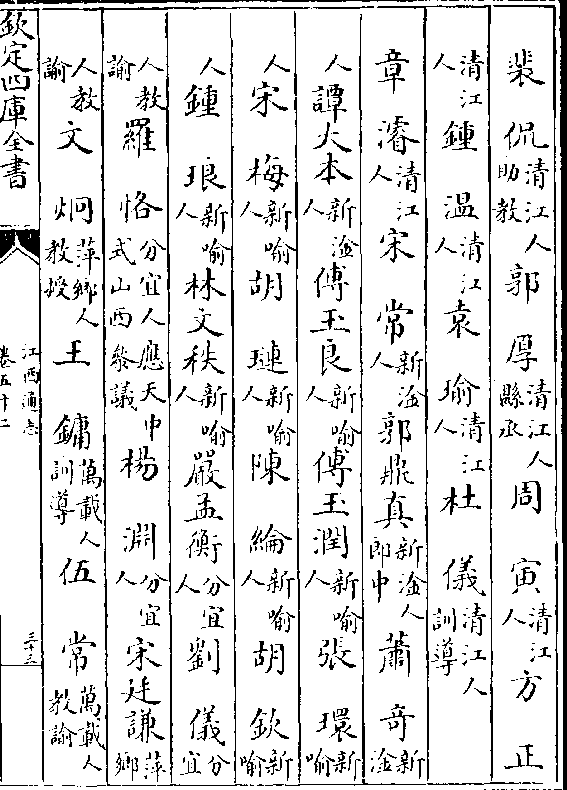 裴侃清江人助教郭厚清江人縣丞周寅清江人方正
清江人鍾溫清江人袁瑜清江人杜儀清江人訓導
章濬清江人宋常新淦人郭鼎真新淦人郎中蕭奇新淦
人譚大本新淦人傅玉良新喻人傅玉潤新喻人張環新喻
人宋梅新喻人胡璉新喻人陳綸新喻人胡欽新喻
人鍾琅新喻人林文秩新喻人嚴孟衡分宜人劉儀分宜
人教諭羅恪分宜人應天中式山西叅議楊淵分宜人宋廷謙萍鄉
人教諭文炯萍鄉人教授王鏞萬載人訓導伍常萬載人教諭
欽定四庫全書
江西通志
卷五十二
三十三